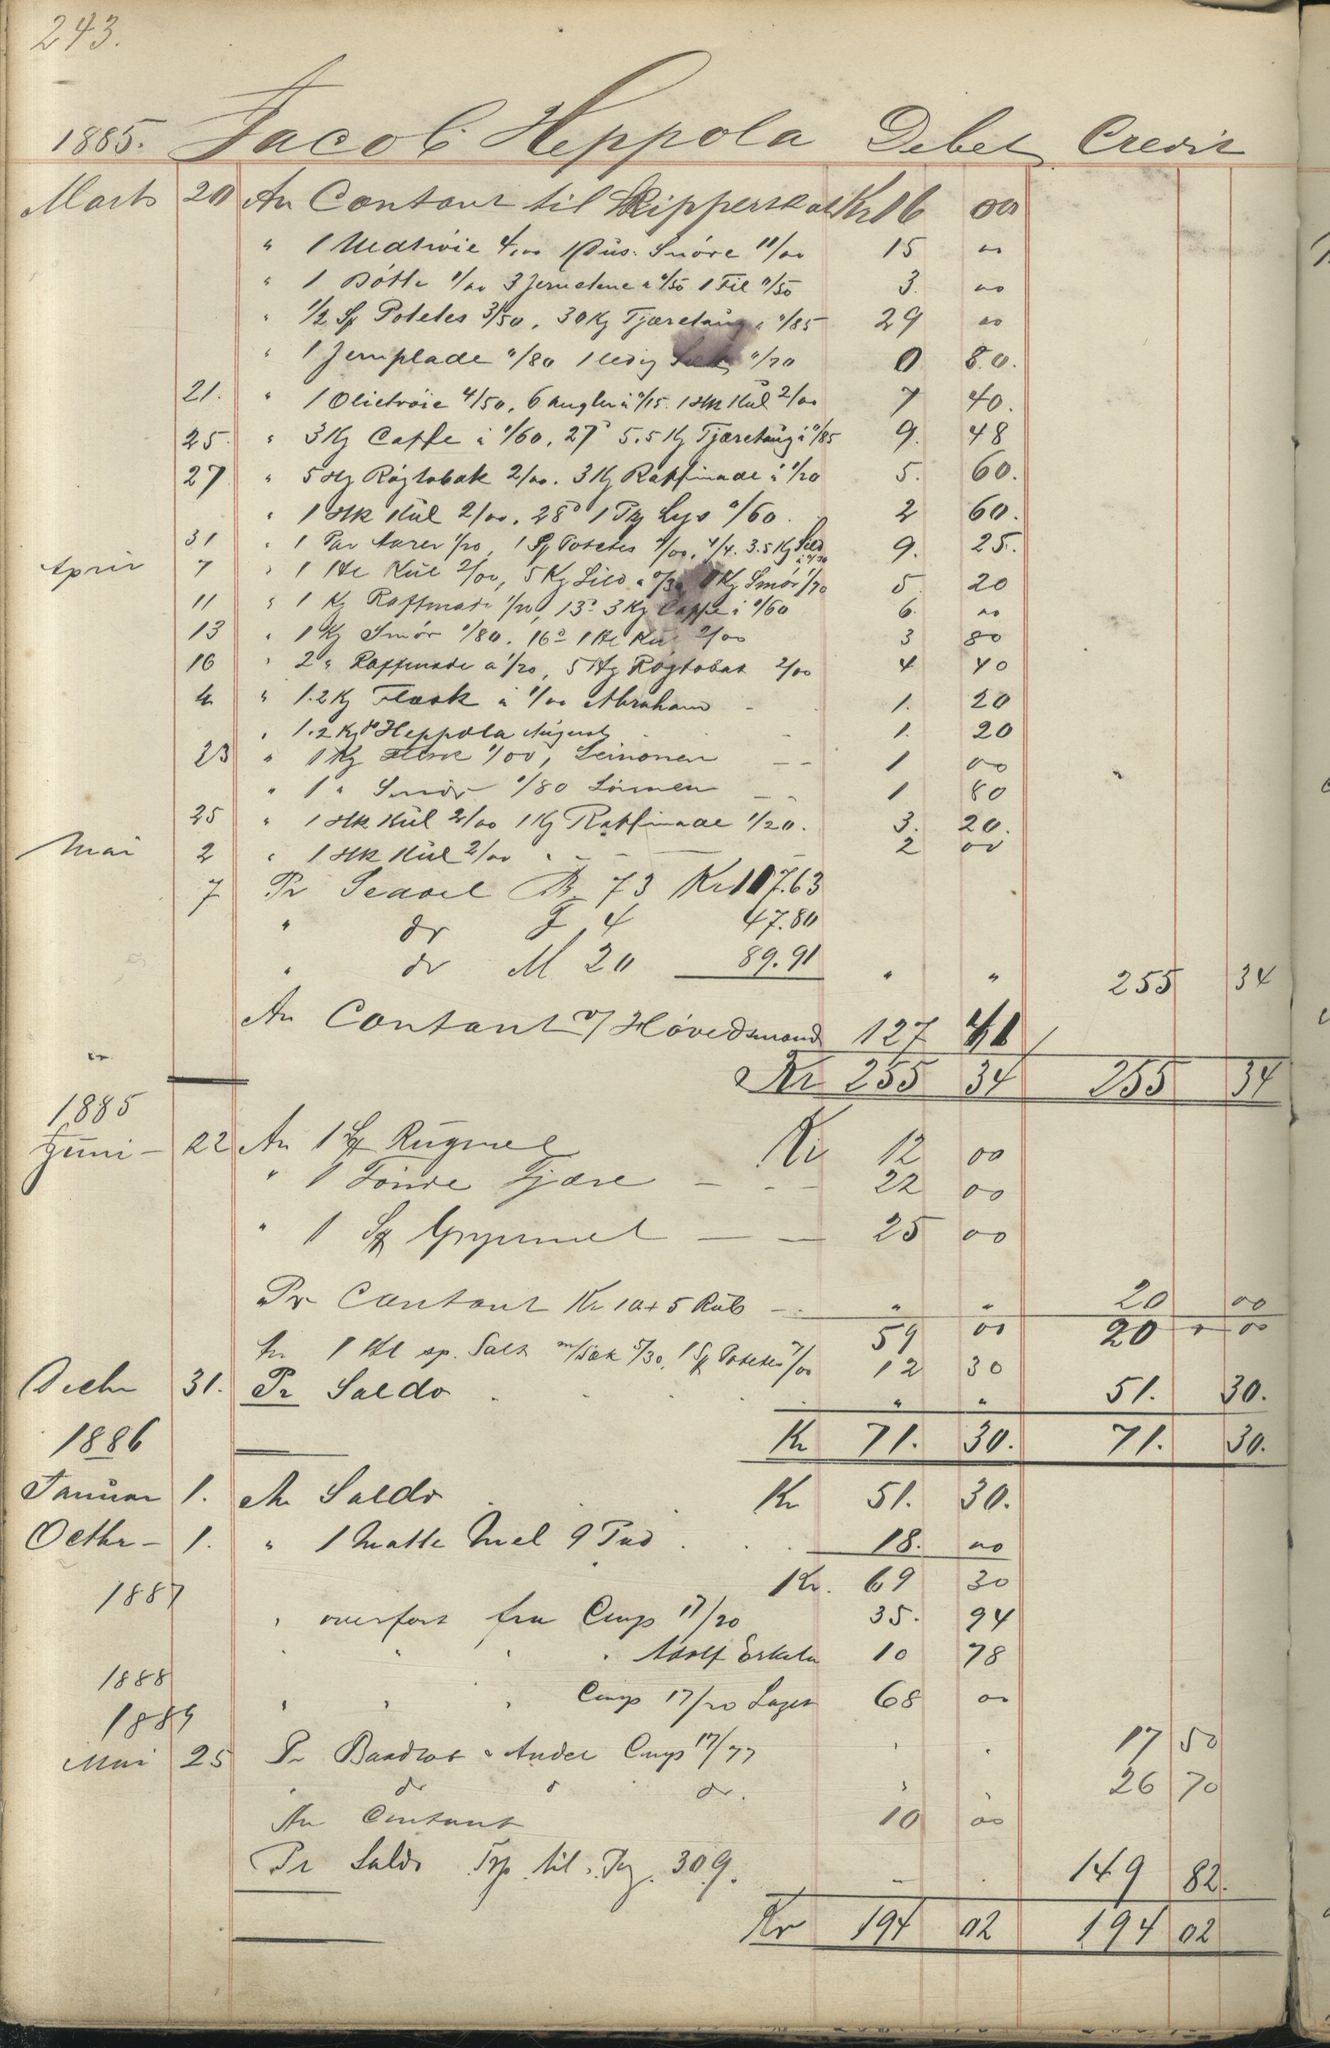 243.
1885. Jacob Heppola Debet Credit
Marts 20 An Contant til Skipperskat Kr 16 00
" 1 4/00 1 Dus. Snöre 11/00 15 00
" 1 Bötte 1/00 3 a 0/50 1 Fil 0/50 3 00
" 1/2 Sf Potetes 3/50, 30 Kg Tjæretaug a 0/85 29 00
" 1 Jernplade 0/80 1 0/70 0 80.
21. " 1 Olietröie 4/50, 6 Angler a 0/15. 1 Hk Kul 2/00 7 40.
25. " 3 Kg Caffe à 1/60, 27d 5.5 Kg Tjæretaug à 0/85 9. 48
27 " 5 Hg Rögtobak 2/00. 3 Kg Raffinade à 1/20 5. 60.
" 1 Hk Kul 2/00, 28d 1 Pk Lys 0/60 2 60.
31 " 1 Par Aarer 1/20, 1 Sf Potetes 7/00, 4/4. 3.5 Kg Sild à 0/30 9. 25.
April 7 " 1 Hl Kul 2/00, 5 Kg Sild a 0/30 1 Kg Smör 1/70 5 20
11 " 1 Kg Raffinade 1/20, 13d 3 Kg Caffe à 1/60 6. 00
13 " 1 Kg Smör 1/80. 16d 1 Hl Kul 2/00 3 80
16 " 2 " Raffinade a 1/20, 5 Hg Rögtobak 2/00 4 40
4 " 1.2 Kg Flæsk à 1/00 Abraham - 1. 20
" 1.2 Kg do Heppola August - 1. 20
23 " 1 Kg Flesk 1/00, Leinonen - - 1 00
" 1 " Smör 1/80 - - 1 80
25 " 1 Hk Kul 2/00 1 Kg Raffinade 1/20. 3. 20.
Mai 2 " 1 Hk Kul 2/00 - - - 2 00
7 Pr Seddel B 73 Kr 117.63
" do F 4 47.80
" do M 20 89.91 " " 255 34
An Contant v/ Hövedsmand 127 41
Kr 255 34 255 34
1885
Juni - 22 An 1 Sf Rugmel Kr 12 00
" 1 Tönde Tjære - - - 22 00
" 1 Sf Grynmel - - 25 00
Pr Contant Kr 10 + 5 Rub - " " 20 00
59 00 20 00
An 1 Hl sp. Salt m/Sæk 5/30, 1 Sf Potetes 7/00 12 30
Decbr 31. Pr Saldo . . . " " 51. 30.
Kr 71. 30. 71. 30.
1886
Januar 1. An Saldo . . . Kr 51. 30.
Octbr - 1. " 1 Matte Mel 9 Pud . . . 18. 00
Kr. 69 30
1887
" overfort fra Comp 17/20 35. 94
" " " " Adolf Erkela 10 78
1888
" " " Comp 17/20 Laget 68 00
1889
Mai 25 Pr Baadlot o Andel Comp 17/77 " " 17 50
" do " do. " 26 70
An Contant 10 00
Pr Saldo Trp. til. Pg. 309. - . 149 82.
Kr 194 02 194 02